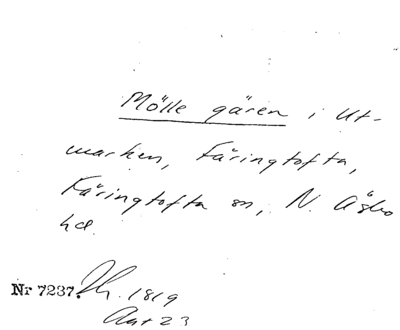 Mölle gären i Ut-
marken, Färingtofta,
Färingtofta sn, N. Åsbo
hd.
Nr 7237. 1819
Akt 23